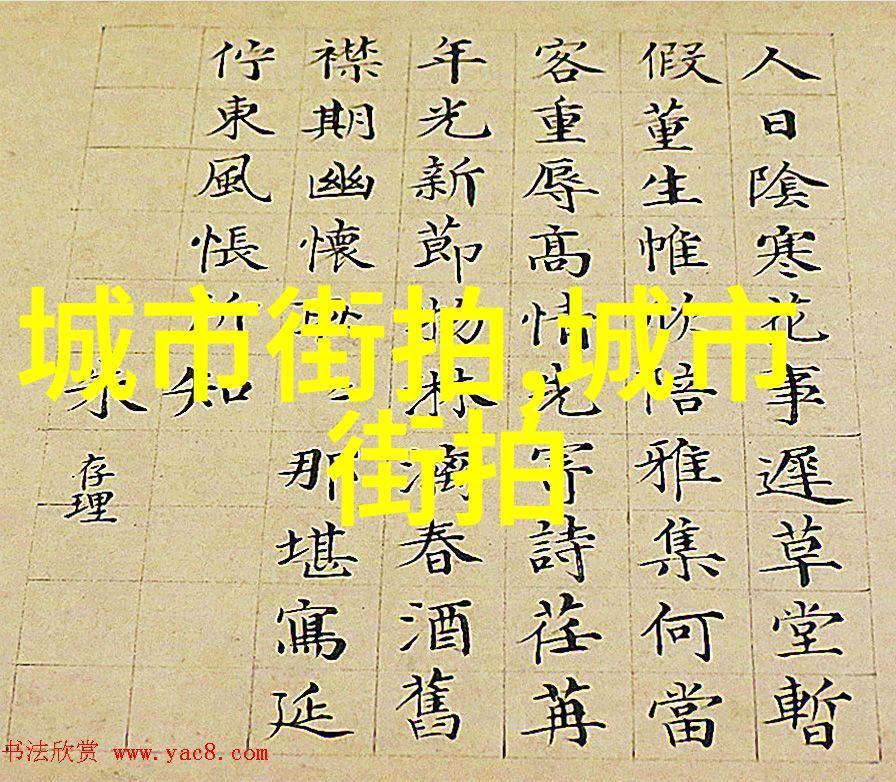 人日陰寒花事遲草堂暫
假董生帷陪雅集何當
客重辱高情先寄詩荏苒
年光新節物林漓春酒舊
襟期幽懷那堪寫延
佇東風悵所知
朱存理
城市街拍,城市
街拍
书法欣赏 www.yac8.com